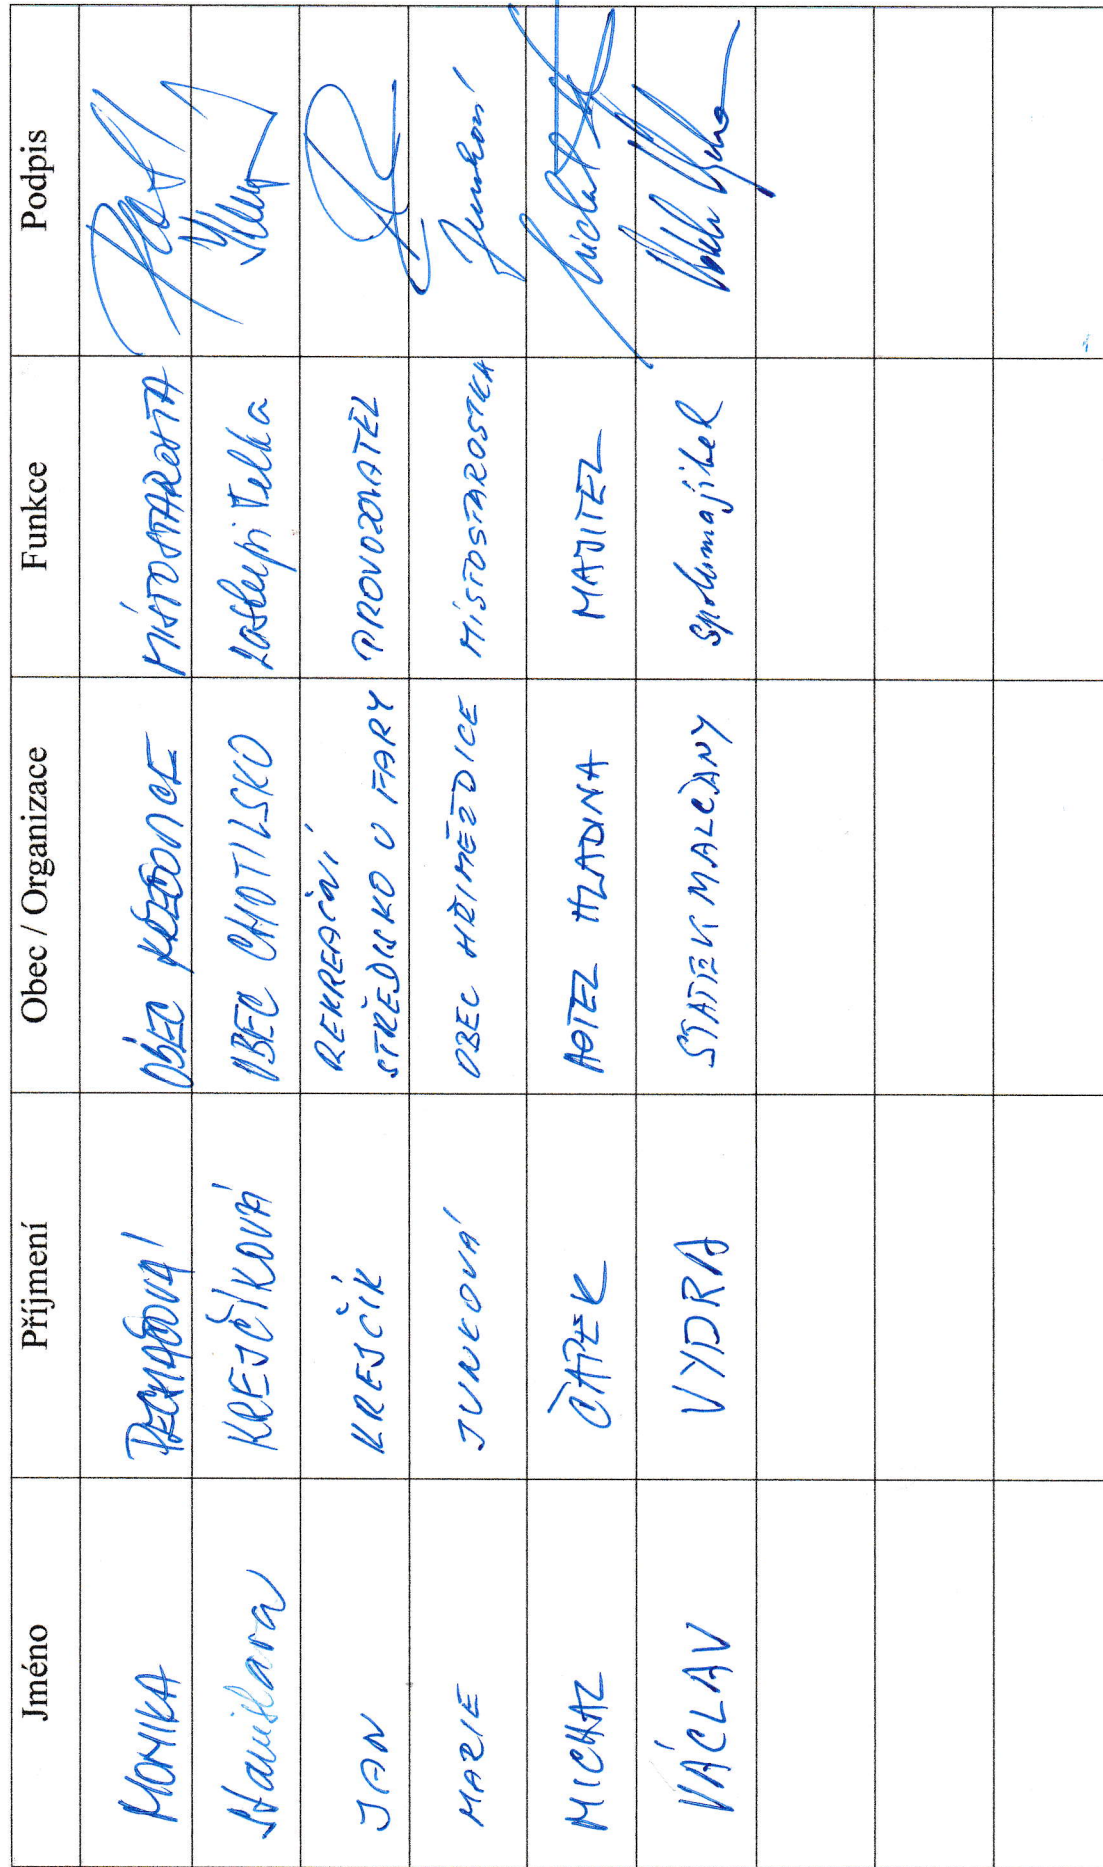 Jméno Příjmení Obec / Organizace Funkce Podpis
MONIKA OBEC KŘEČOVICE MÍSTOSTAROSTA
Stanislava KREJČÍKOVÁ OBEC CHOTILSKO zastupitelka
JAN KREJČÍK REKREAČNÍ
STŘEDISKO U FARY PROVOZOVATEL
MARIE JUNKOVÁ OBEC HŘIMĚŽDICE MÍSTOSTAROSTKA Junková
MICHAL ČAPEK HOTEL HLADINA MAJITEL
VÁCLAV VYDRA STATEK MALČANY Spolumajitel